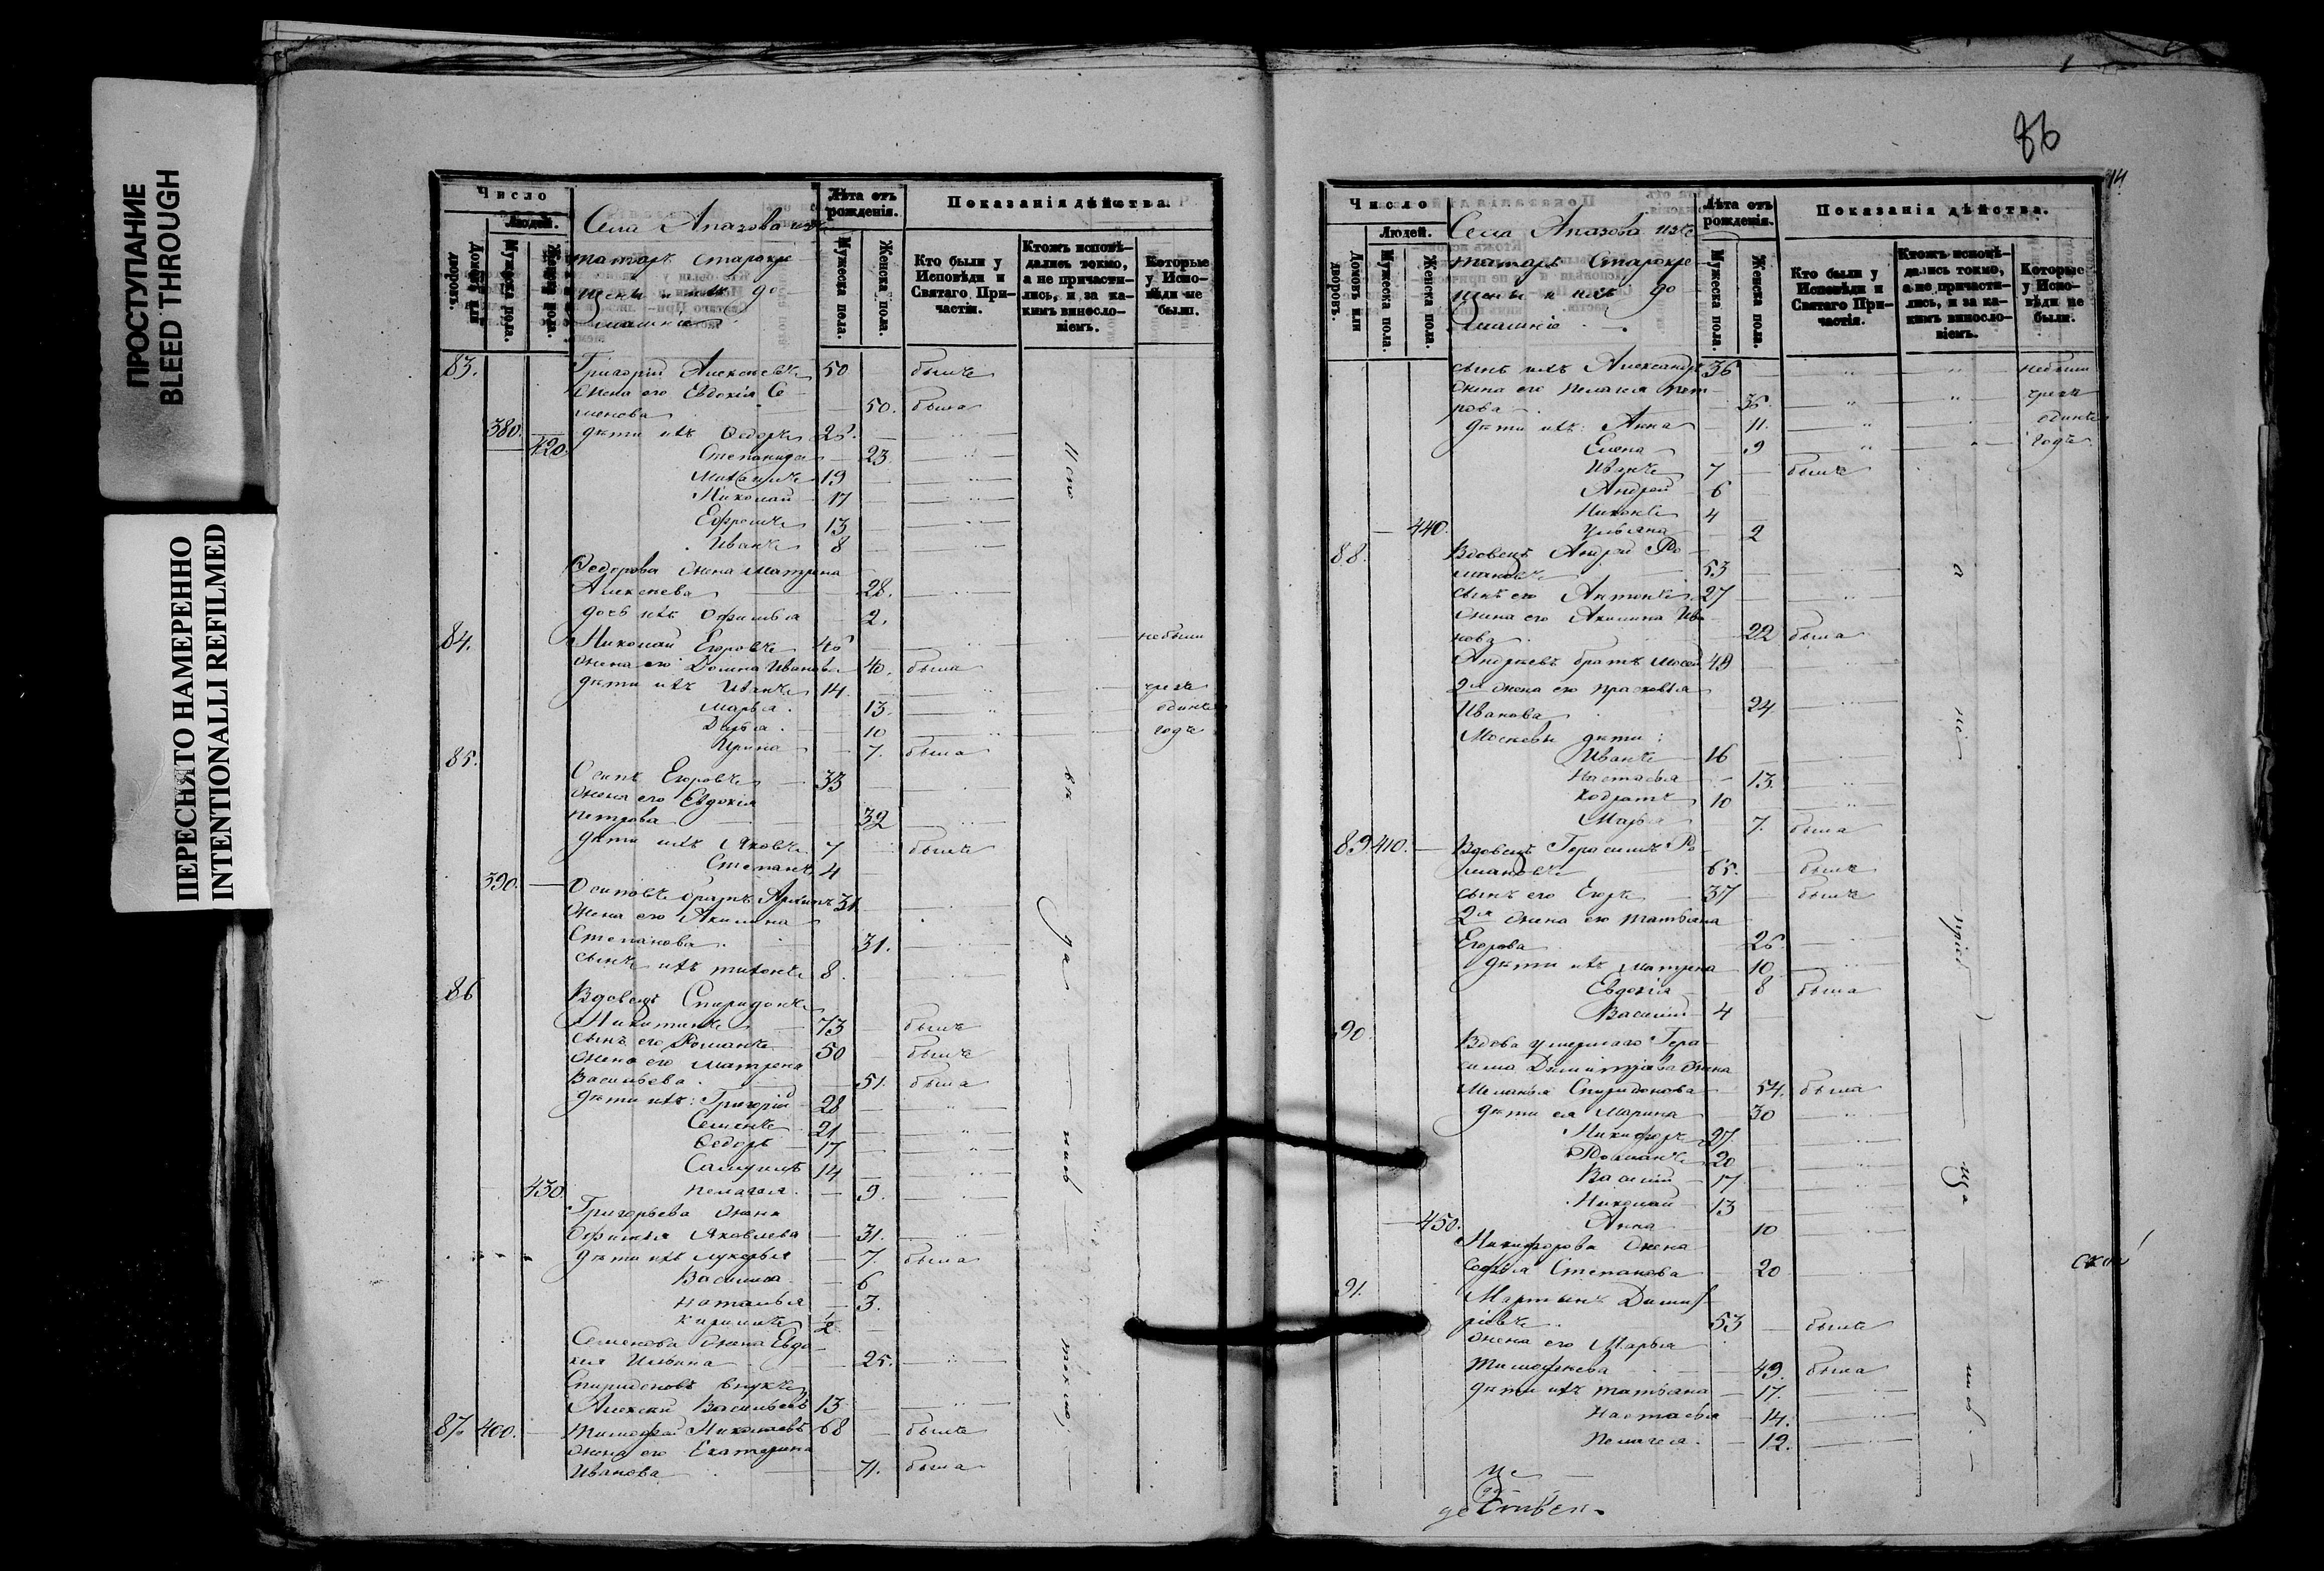 ПРОСТУПАНИЕ
BLEED THROUGH
ПЕРЕСНЯТО НАМЕРЕННО
INTENTIONALLI REFILMED
Число
Людей.
Домовъ или дворовъ.
Мужеска пола.
Женска пола.
Села Апазова изъ
татаръ старокре
щены и ихъ до
машніе
Лѣта отъ рожденія.
Мужеска пола.
Женска пола.
Показанія дѣйства.
Кто были у Исповѣди и Святаго Причастія.
Ктожъ исповѣдались токмо, а не причастились, и за какимъ винословіемъ.
Которые у Исповѣди не были.
83. Григорій Алексеевъ 50 былъ
Жена его Евдокія Се
менова 50. была
380. дѣти ихъ Ѳедоръ 25.
420. Степанида 23
Михаилъ 19
Николай 17
Ефремъ 13
Иванъ 8
Ѳедорова жена Матрена
Алексеева 28.
дочь ихъ Офимья 2.
84. Николай Егоровъ 40 небыли
жена его Домна Иванова 40. была
дѣти ихъ Иванъ 14. чрезъ
Марья. 13. одинъ
Дарья. 10 годъ
Ирина 7. была
85.
Осипъ Егоровъ 33
жена его Евдокія
Петрова 32
дѣти ихъ Яковъ 7 былъ
Степанъ 4
390. Осиповъ братъ Архипъ 31.
Жена его Акилина
Степанова. 31.
сынъ ихъ Тихонъ 8.
86 Вдовецъ Спиридонъ
Никитинъ 73 былъ
сынъ его Романъ 50 былъ
жена его Матрена
Васильева. 51. была
дѣти ихъ: Григорій 28
Семенъ 21
Ѳедоръ 17
Самуилъ 14
430. Пелагея. 9.
Григорьева жена
Офимья Яковлева 31.
дѣти ихъ Лукерья 7. была
Василиса 6
Наталья 3.
Кирилъ ½
Семенова жена Евдо
кея Ильина 25.
Спиридоновъ внукъ
Алексей Васильевъ 13
87 400. Тимофей Николаевъ 68 былъ
жена его Екатерина
Иванова 71. была
86
Число
Людей.
Домовъ или дворовъ.
Мужеска пола.
Женска пола.
Села Апазова изъ
татаръ Старокре
щены и ихъ до
машніе
Лѣта отъ рожденія.
Мужеска пола.
Женска пола.
Показанія дѣйства.
Кто были у Исповѣди и Святаго Причастія.
Ктожъ исповѣдались токмо, а не причастились, и за какимъ винословіемъ.
Которые у Исповѣди не были.
сынъ ихъ Александръ 36 небыли
жена его Пелагея Пет чрезъ
рова 36. одинъ
дѣти ихъ: Анна 11. годъ
Елена 9
Иванъ 7 былъ
Андрей 6
Никонъ 4
440. Ульяна 2
88. Вдовецъ Андрей Ро
мановъ 53
сынъ его Антонъ 27
жена его Акилина Ива
нова. 22 была
Андреевъ братъ Мосей 49
2я жена его Прасковья
Иванова 24
Мосеевы дѣти:
Иванъ 16
Настасья 13.
Кодратъ 10
Марья 7. была
89. 410. Вдовецъ Герасимъ Ро
мановъ 65. былъ
сынъ его Егоръ 37 былъ
2я жена его Татьяна
Егорова 26.
дѣти ихъ Матрена 10
Евдокія 8 была
Василій 4
90. Вдова умершаго Гера
сима Димитріева жена
Меланья Спиридонова 54. была
дѣти ея Марина 30
Никифоръ 27.
Романъ 20
Василій 17
Николай 13
450. Анна 10
Никифорова жена
Софія Степанова 20
91. Мартынъ Димит
ріевъ. 53 былъ
жена его Марья
Тимофеева 49. была
дѣти ихъ Татьяна 17.
Настасья 14.
Пелагея. 12.